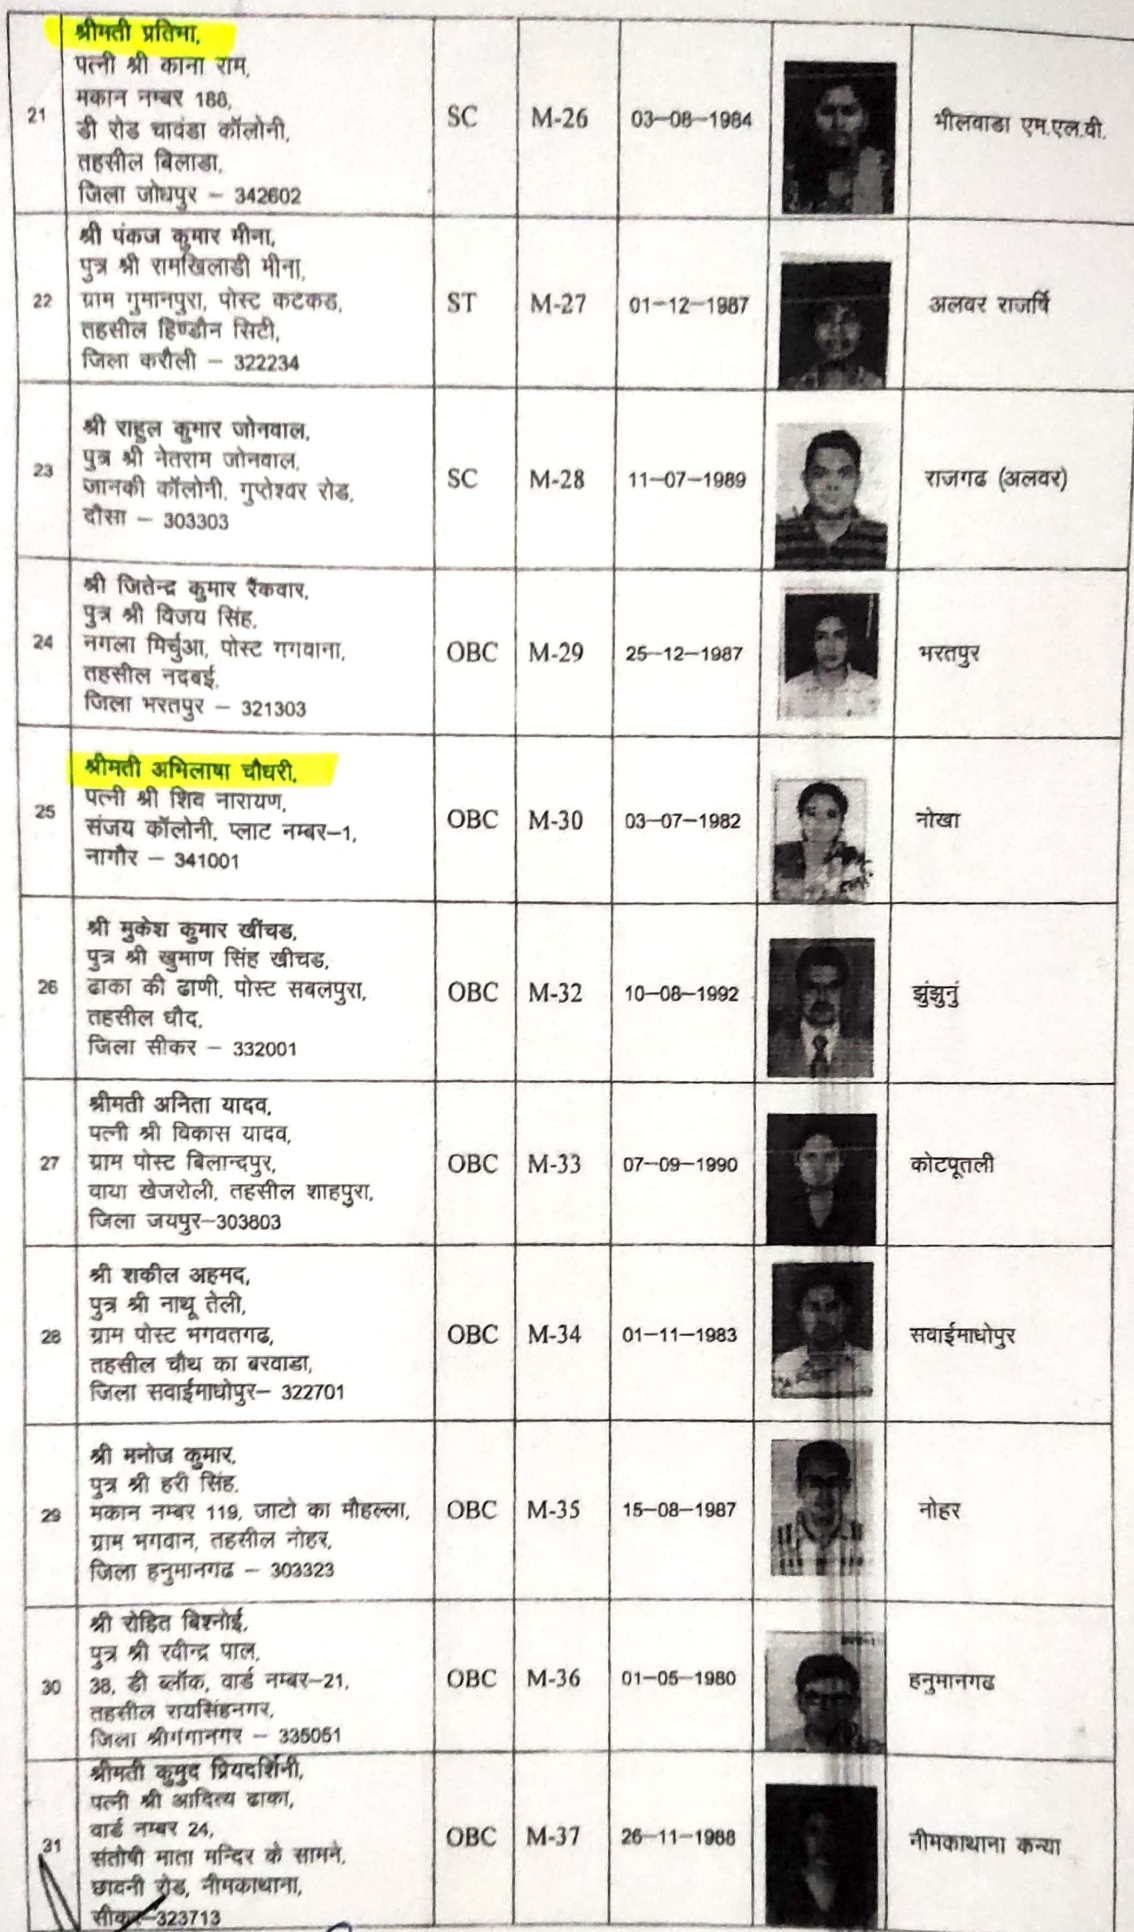 21
श्रीमती प्रतिभा,
पत्नी श्री काना राम,
मकान नम्बर 188,
डी रोड चावंडा कॉलोनी,
तहसील बिलाडा,
जिला जोधपुर – 342602
SC
M-26
03-08-1984
भीलवाडा एम.एल.वी.
22
श्री पंकज कुमार मीना,
पुत्र श्री रामखिलाडी मीना,
ग्राम गुमानपुरा, पोस्ट कटकड,
तहसील हिण्डौन सिटी,
जिला करौली – 322234
ST
M-27
01-12-1987
अलवर राजर्षि
23
श्री राहुल कुमार जोनवाल,
पुत्र श्री नेतराम जोनवाल,
जानकी कॉलोनी, गुप्तेश्वर रोड,
दौसा – 303303
SC
M-28
11-07-1989
राजगढ (अलवर)
24
श्री जितेन्द्र कुमार रैंकवार,
पुत्र श्री विजय सिंह,
नगला मिर्चुआ, पोस्ट गगवाना,
तहसील नदबई,
जिला भरतपुर – 321303
OBC
M-29
25-12-1987
भरतपुर
25
श्रीमती अभिलाषा चौधरी,
पत्नी श्री शिव नारायण,
संजय कॉलोनी, प्लाट नम्बर–1,
नागौर – 341001
OBC
M-30
03-07-1982
नोखा
26
श्री मुकेश कुमार खींचड,
पुत्र श्री खुमाण सिंह खीचड,
ढाका की ढाणी, पोस्ट सबलपुरा,
तहसील धौद,
जिला सीकर – 332001
OBC
M-32
10-08-1992
झुंझुनुं
27
श्रीमती अनिता यादव,
पत्नी श्री विकास यादव,
ग्राम पोस्ट बिलान्दपुर,
वाया खेजरोली, तहसील शाहपुरा,
जिला जयपुर–303803
OBC
M-33
07-09-1990
कोटपूतली
28
श्री शकील अहमद,
पुत्र श्री नाथू तेली,
ग्राम पोस्ट भगवतगढ,
तहसील चौथ का बरवाडा,
जिला सवाईमाधोपुर– 322701
OBC
M-34
01-11-1983
सवाईमाधोपुर
29
श्री मनोज कुमार,
पुत्र श्री हरी सिंह,
मकान नम्बर 119, जाटो का मौहल्ला,
ग्राम भगवान, तहसील नोहर,
जिला हनुमानगढ – 303323
OBC
M-35
15-08-1987
नोहर
30
श्री रोहित बिश्नोई,
पुत्र श्री रवीन्द्र पाल,
38, डी ब्लॉक, वार्ड नम्बर–21,
तहसील रायसिंहनगर,
जिला श्रीगंगानगर – 335051
OBC
M-36
01-05-1980
हनुमानगढ
31
श्रीमती कुमुद प्रियदर्शिनी,
पत्नी श्री आदित्य ढाका,
वार्ड नम्बर 24,
संतोषी माता मन्दिर के सामने,
छावनी रोड, नीमकाथाना,
सीकर–323713
OBC
M-37
26-11-1988
नीमकाथाना कन्या